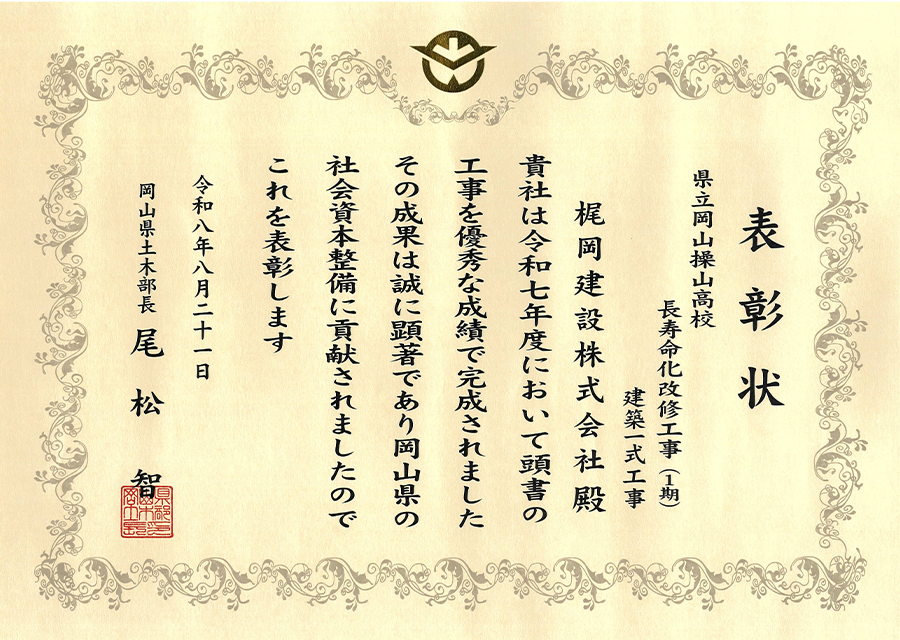 表彰状
県立岡山操山高校
長寿命化改修工事（1期）
建築一式工事
梶岡建設株式会社殿
貴社は令和七年度において頭書の
工事を優秀な成績で完成されました
その成果は誠に顕著であり岡山県の
社会資本整備に貢献されましたので
これを表彰します
令和八年八月二十一日
岡山県土木部長 尾松 智